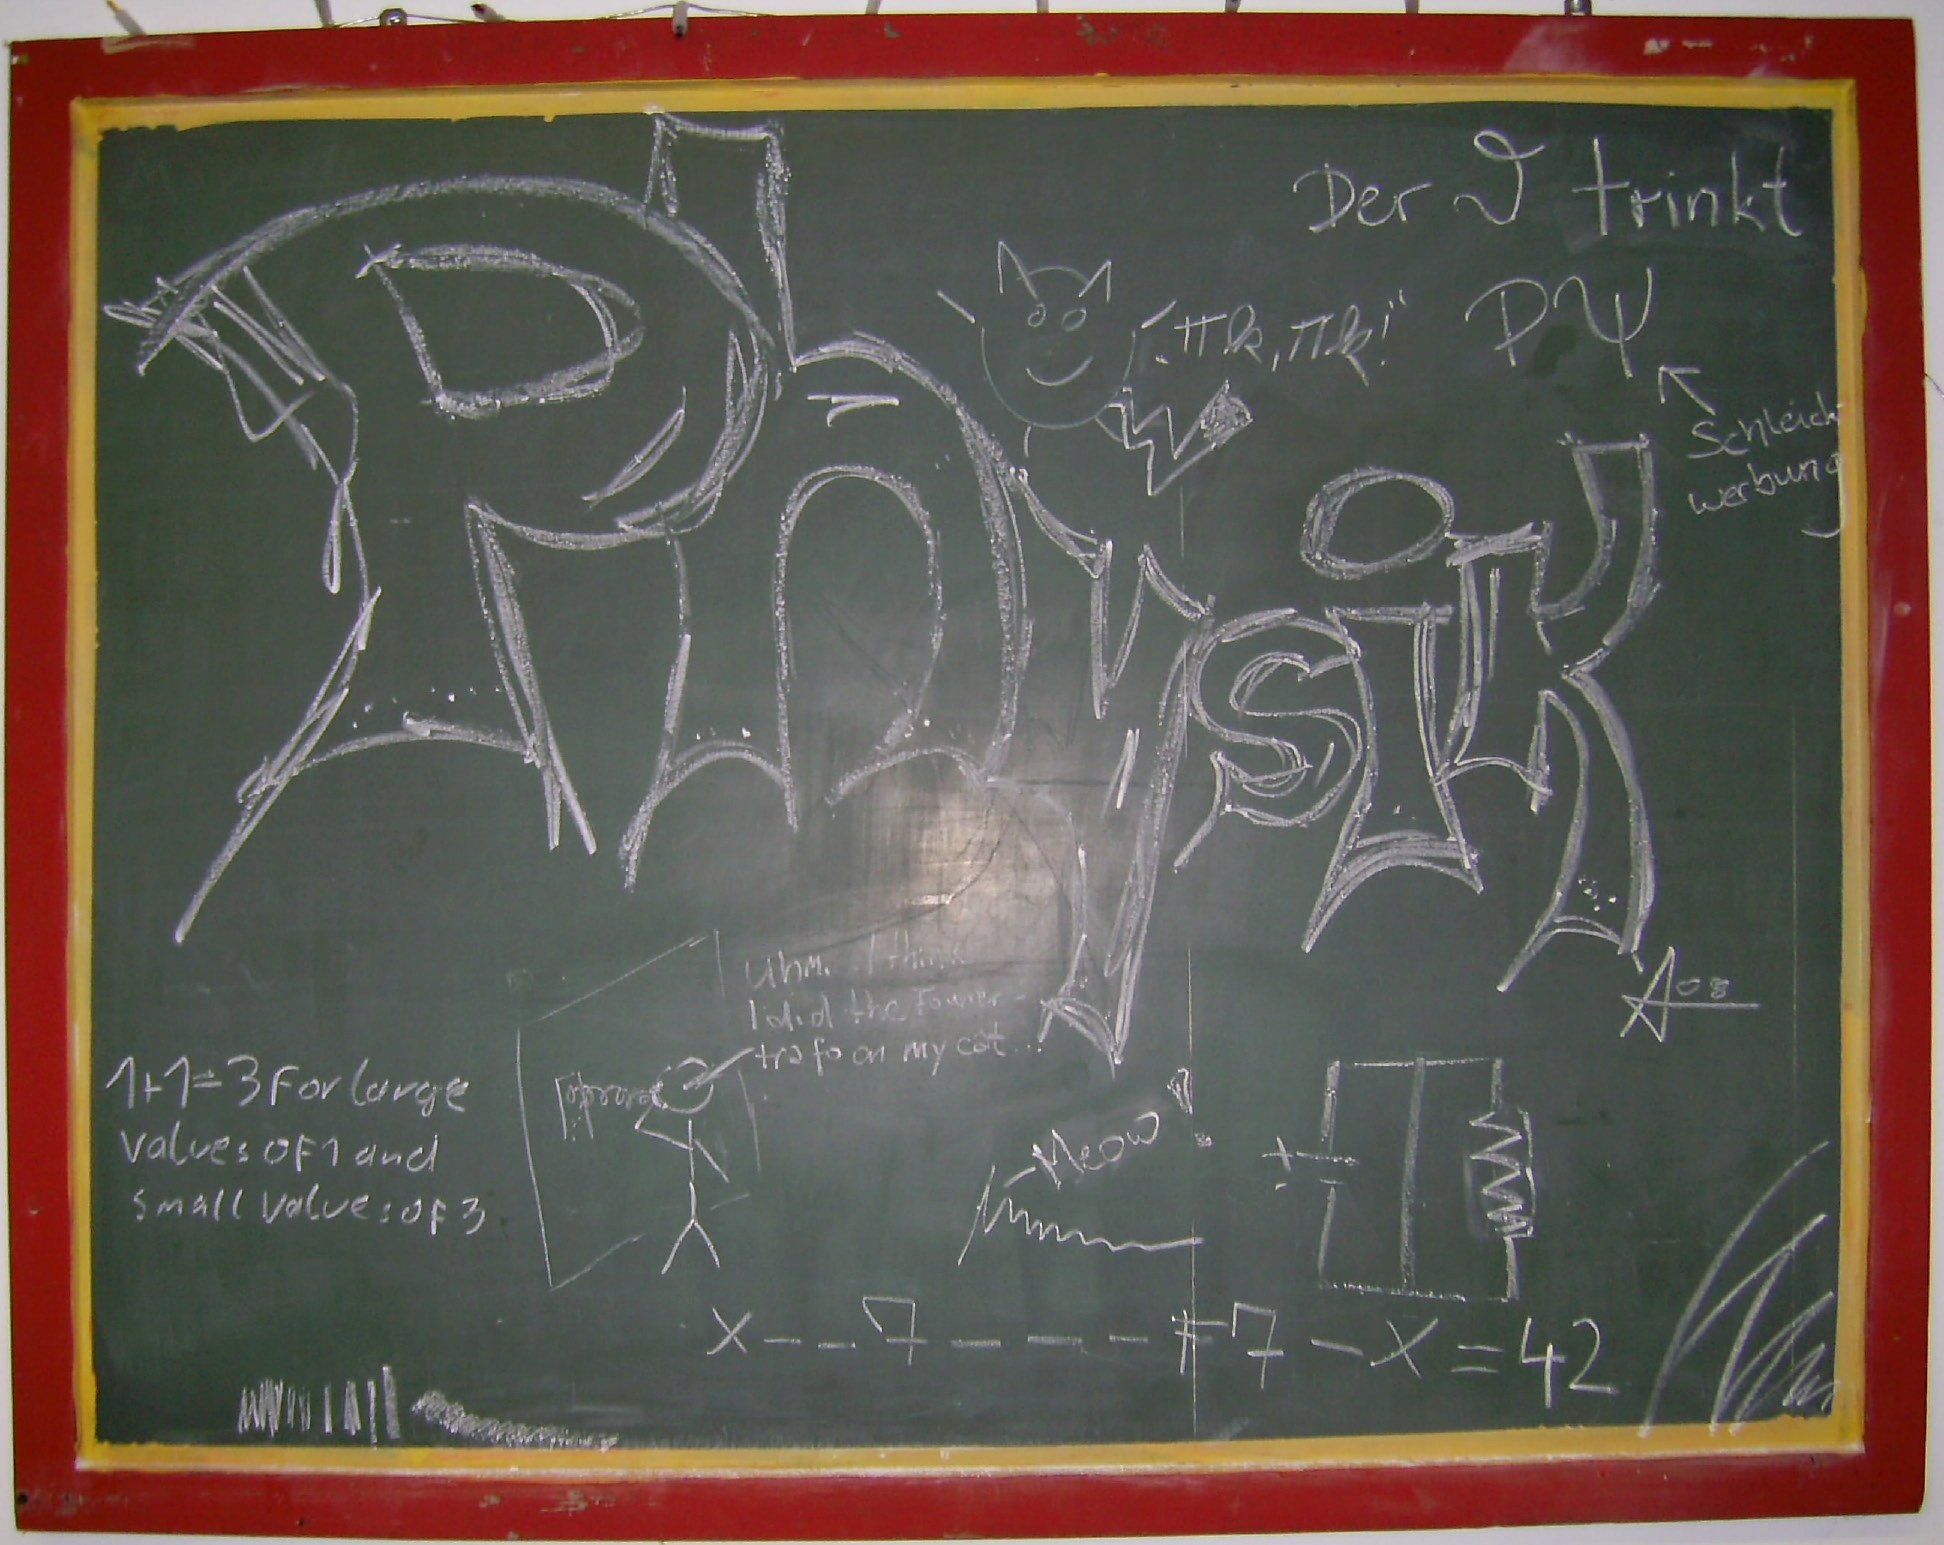 Physik
Der ϑ trinkt
PΨ
Schleich
werbung
"πk, πk!"
A08
Uhm... I think
I did the Fourier-
trafo on my cat...
1+1=3 For large
values of 1 and
small values of 3
Meow
+
x - - 7 - - - - + 7 - x = 42